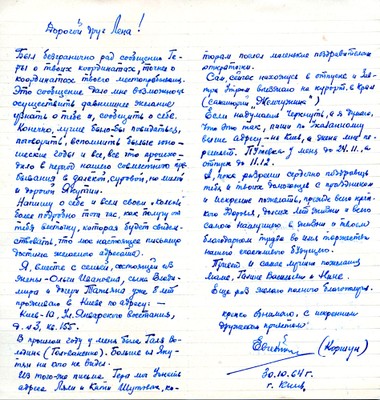 Дорогой друг Лена!
Был безгранично рад сообщению Ге-
ры о твоих координатах, точнее о
координатах твоего местопребывания.
Это сообщение дало мне возможность
осуществить давнишнее желание
узнать о тебе и, сообщить о себе.
Конечно, лучше было-бы повидаться,
поговорить, вспомнить былые юно-
шеские годы и все, все что происхо-
дило в период нашего совместного пре-
бывания в далекой, суровой, но милой
и дорогой Якутии.
Напишу о себе и всем своем
более подробно тогда, как получу от
тебя весточку, которая будет свиде-
тельствовать, что мое настоящее письмецо
достигло желаемого адресата.
Я, вместе с семьей, состоящей из
жены - Ольги Ивановны, сына Влади-
мира и дочери Татьяны уже 8 лет
проживаю в Киеве по адресу:
Киев-10, ул. Январского восстания,
д. №3, кв. 165.
В прошлом году у меня была Галя
Больше из Яку-
тии ни кого не видел.
Из того-же письма Геры мы узнали
адреса Ляли и Кати ко-
торым послал маленькие поздравительные
открытки.
Сам, сейчас нахожусь в отпуске и
завтра выезжаю на курорт в Крым
(санаторий "Жемчужина")
Если надумаешь черкнуть, а я думаю,
что это так, пиши по указанному
выше адресу - на Киев, а жена мне пе-
решлет. Путевка у меня до 24.11, а
отпуск до 11.12.
А, пока разреши сердечно поздравить
тебя и твоих домочадцев с праздником
и искренне пожелать, прежде всего креп-
кого здоровья, долгих лет жизни и всего
самого наилучшего в жизни и твоем
благородном труде во имя торжества
нашего счастливого будущего.
Привет и самые лучшие пожелания
маме, Галине Васильевне и
Еще раз желаю полного благополучия.
крепко обнимаю, с искренним
дружеским приветом:
(Коршун)
30.10.64 г.
г. Киев.